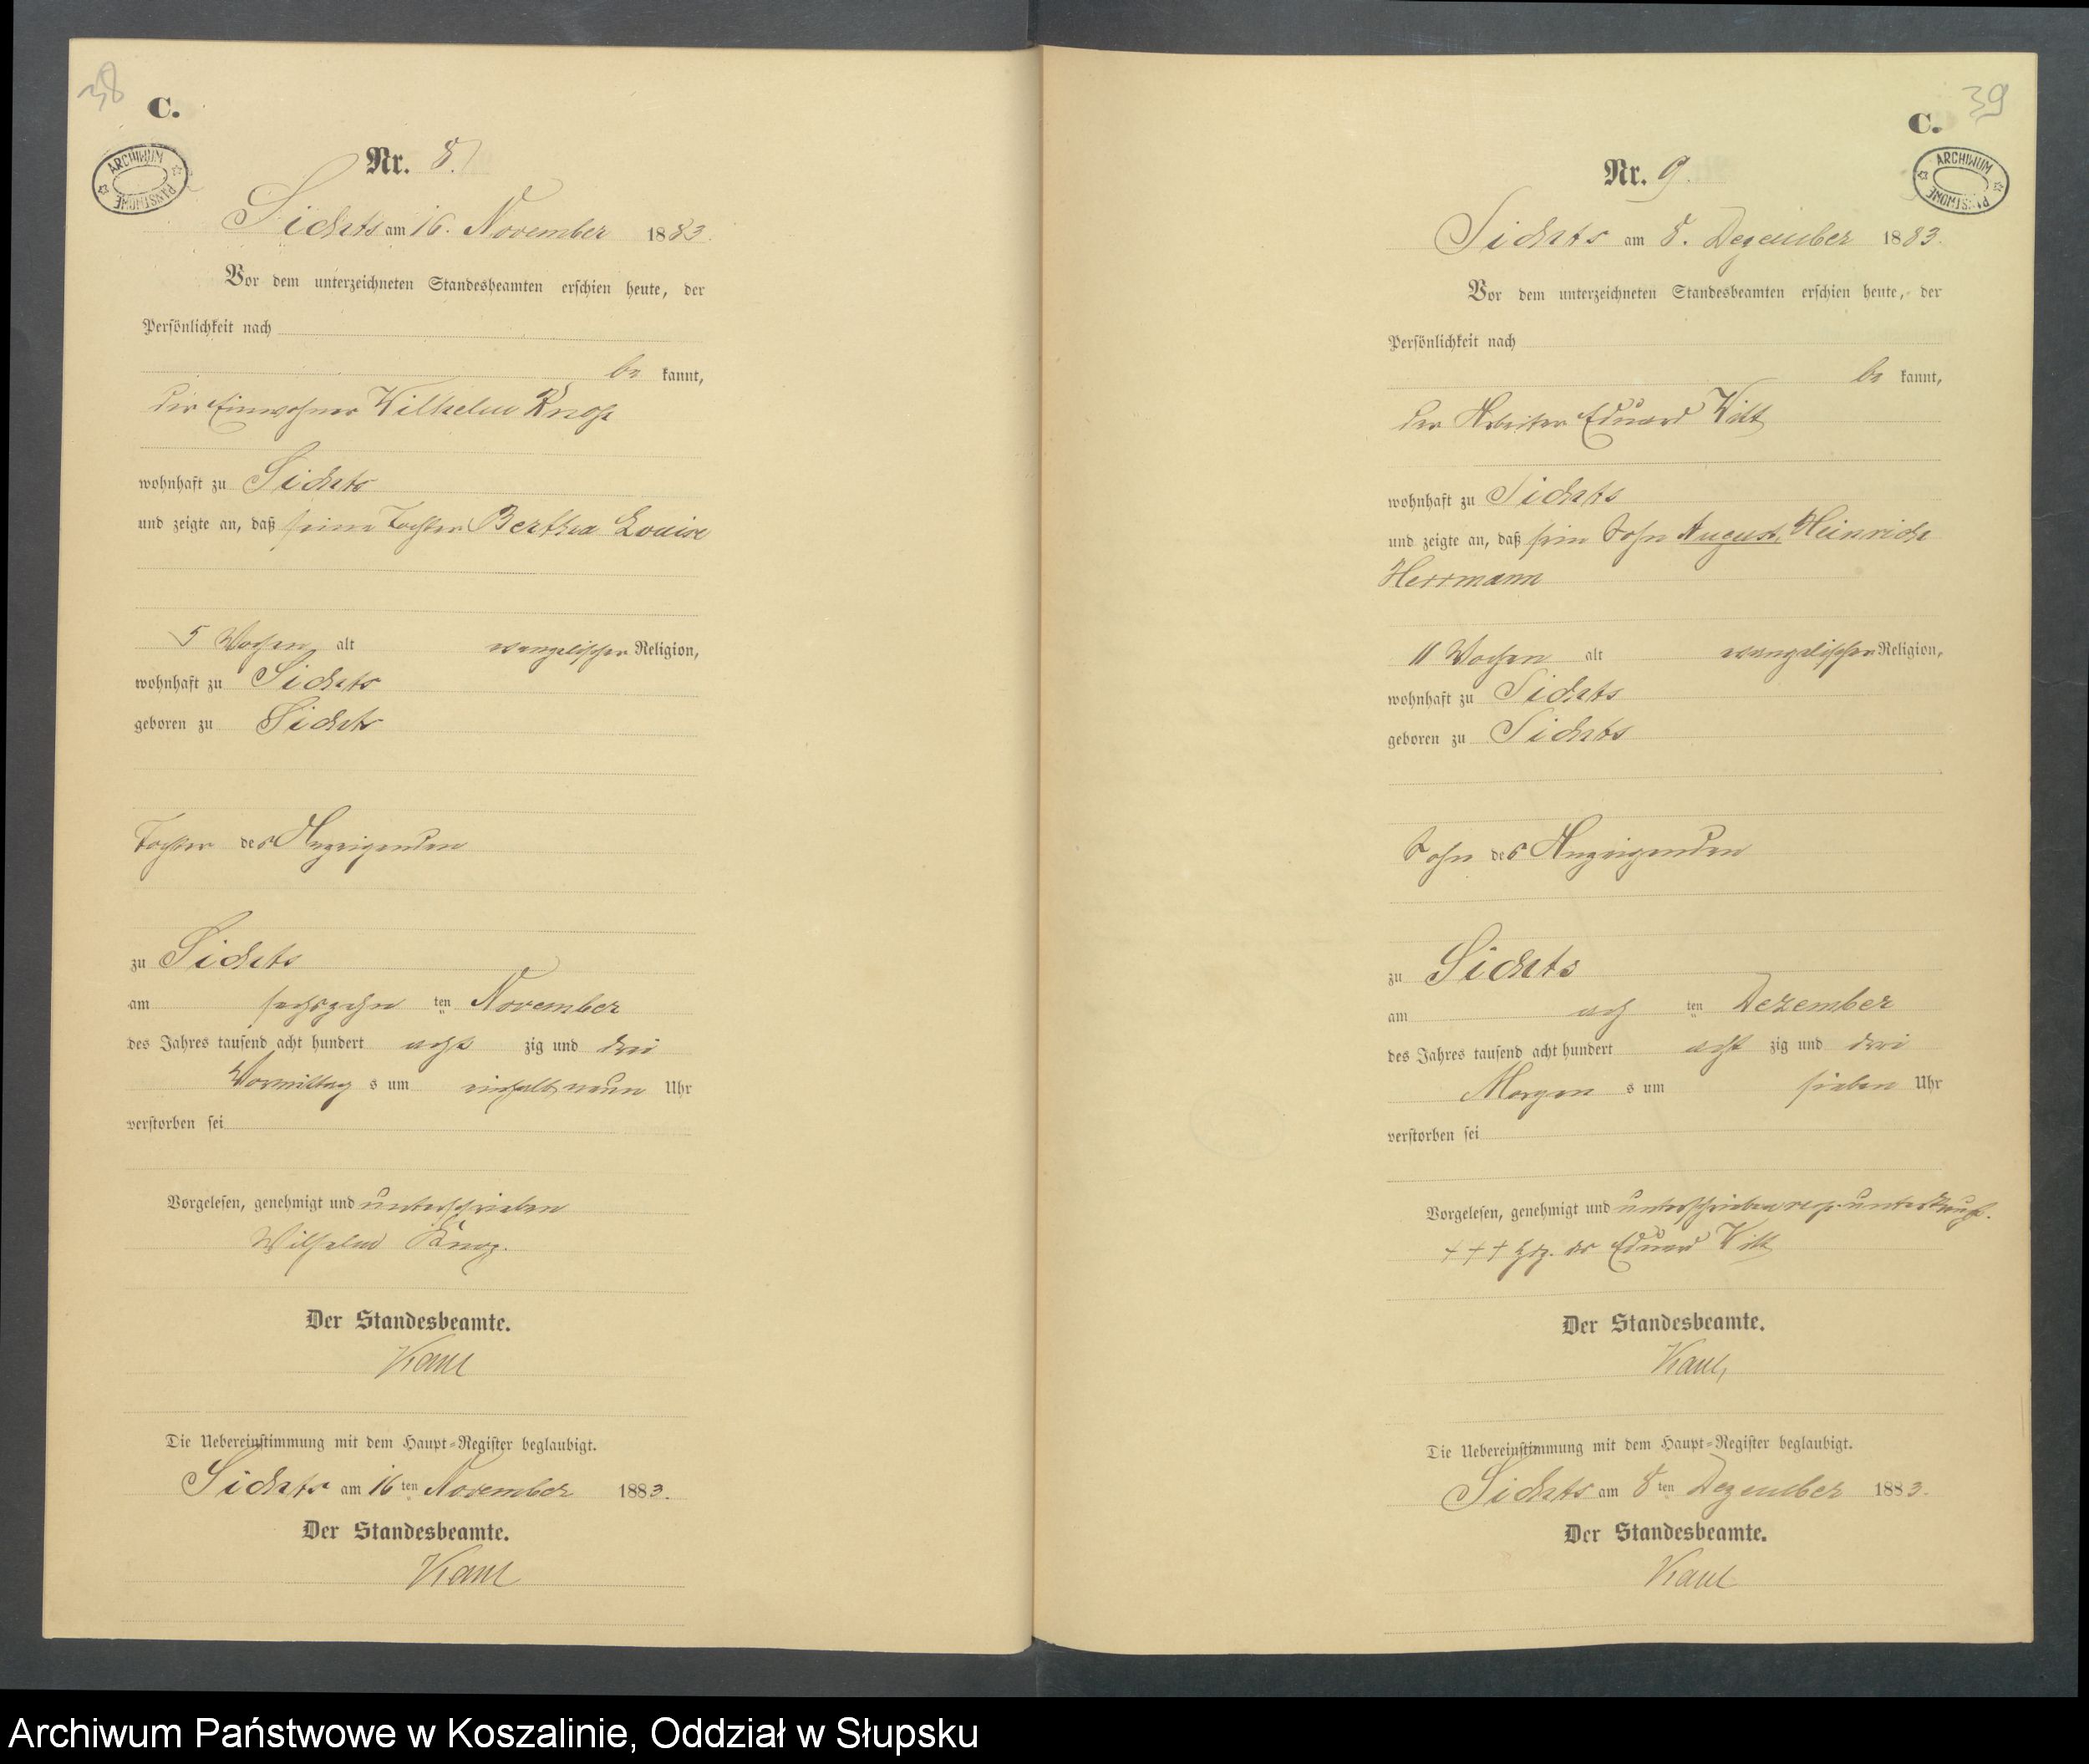 38
C.
ARCHIWUM PAŃSTWOWE
Nr. 8.
Sichts am 16. November 1883.
Vor dem unterzeichneten Standesbeamten erschien heute, der
Persönlichkeit nach
be kannt,
der Einwohner Wilhelm Knop
wohnhaft zu Sichts
und zeigte an, daß seine Tochter Bertha Louise
5 Wochen alt evangelischer Religion,
wohnhaft zu Sichts
geboren zu Sichts
Tochter des Anzeigenden
zu Sichts
am sechszehn ten November
des Jahres tausend acht hundert acht zig und drei
Vormittag s um einhalb neun Uhr
verstorben sei
Vorgelesen, genehmigt und unterschrieben
Wilhelm Knop.
Der Standesbeamte.
Kaul
Die Uebereinstimmung mit dem Haupt-Register beglaubigt.
Sichts am 16 ten November 1883.
Der Standesbeamte.
Kaul
39
C.
ARCHIWUM PAŃSTWOWE
Nr. 9.
Sichts am 8. Dezember 1883.
Vor dem unterzeichneten Standesbeamten erschien heute, der
Persönlichkeit nach
be kannt,
der Arbeiter Eduard Witt
wohnhaft zu Sichts
und zeigte an, daß sein Sohn August, Heinrich
Herrmann
11 Wochen alt evangelischer Religion,
wohnhaft zu Sichts
geboren zu Sichts
Sohn des Anzeigenden
zu Sichts
am ach ten Dezember
des Jahres tausend acht hundert acht zig und drei
Morgen s um sieben Uhr
verstorben sei
Vorgelesen, genehmigt und unterschrieben resp. unterkreuzt.
+++ Hdz. des Eduard Witt
Der Standesbeamte.
Kaul
Die Uebereinstimmung mit dem Haupt-Register beglaubigt.
Sichts am 8 ten Dezember 1883.
Der Standesbeamte.
Kaul
Archiwum Państwowe w Koszalinie, Oddział w Słupsku